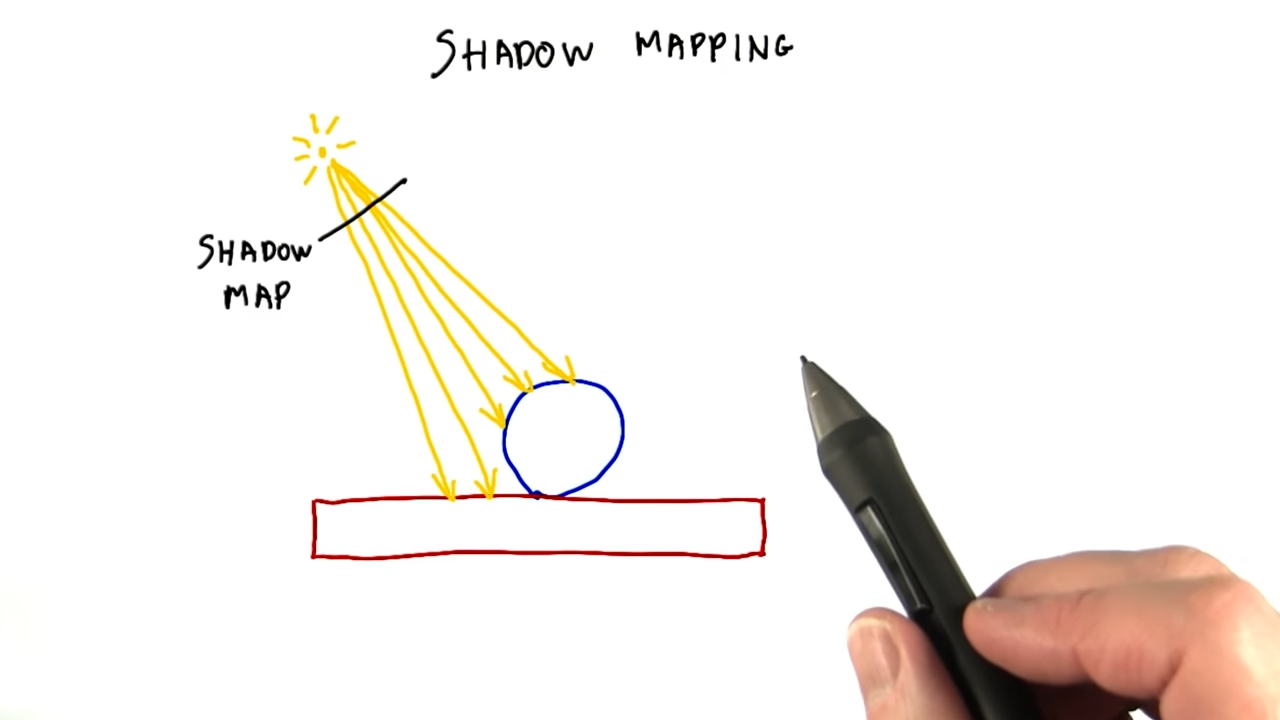 SHADOW MAPPING
SHADOW
MAP